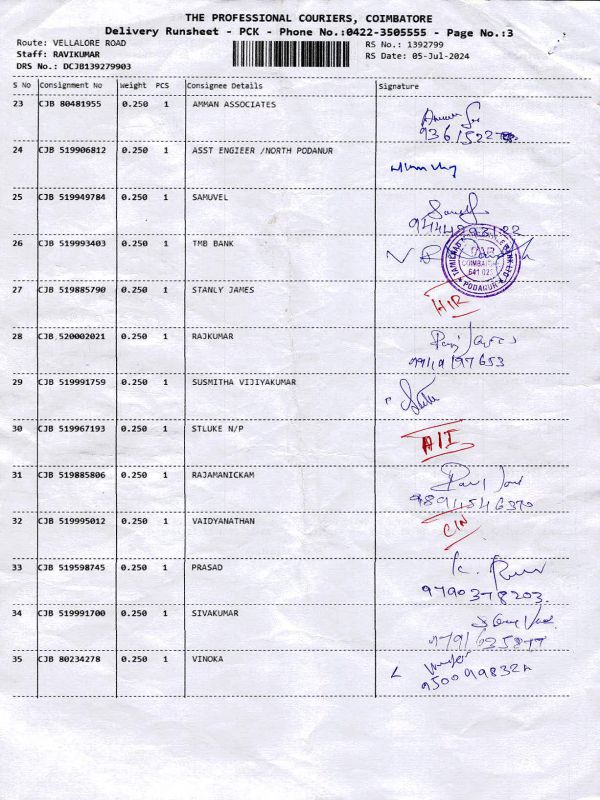 THE PROFESSIONAL COURIERS, COIMBATORE
Delivery Runsheet - PCK - Phone No.:0422-3505555 - Page No.:3
Route: VELLALORE ROAD RS No.: 1392799
Staff: RAVIKUMAR RS Date: 05-Jul-2024
DRS No.: DCJB139279903
S No Consignment No Weight PCS Consignee Details Signature
23 CJB 80481955 0.250 1 AMMAN ASSOCIATES
24 CJB 519906812 0.250 1 ASST ENGIEER /NORTH PODANUR
25 CJB 519949784 0.250 1 SAMUVEL
26 CJB 519993403 0.250 1 TMB BANK
COIMBATORE
641 023
PODANUR
27 CJB 519885790 0.250 1 STANLY JAMES
HIR
28 CJB 520002021 0.250 1 RAJKUMAR
29 CJB 519991759 0.250 1 SUSMITHA VIJIYAKUMAR
30 CJB 519967193 0.250 1 STLUKE N/P
AII
31 CJB 519885806 0.250 1 RAJAMANICKAM
32 CJB 519995012 0.250 1 VAIDYANATHAN
CIN
33 CJB 519598745 0.250 1 PRASAD
9790378203.
34 CJB 519991700 0.250 1 SIVAKUMAR
35 CJB 80234278 0.250 1 VINOKA